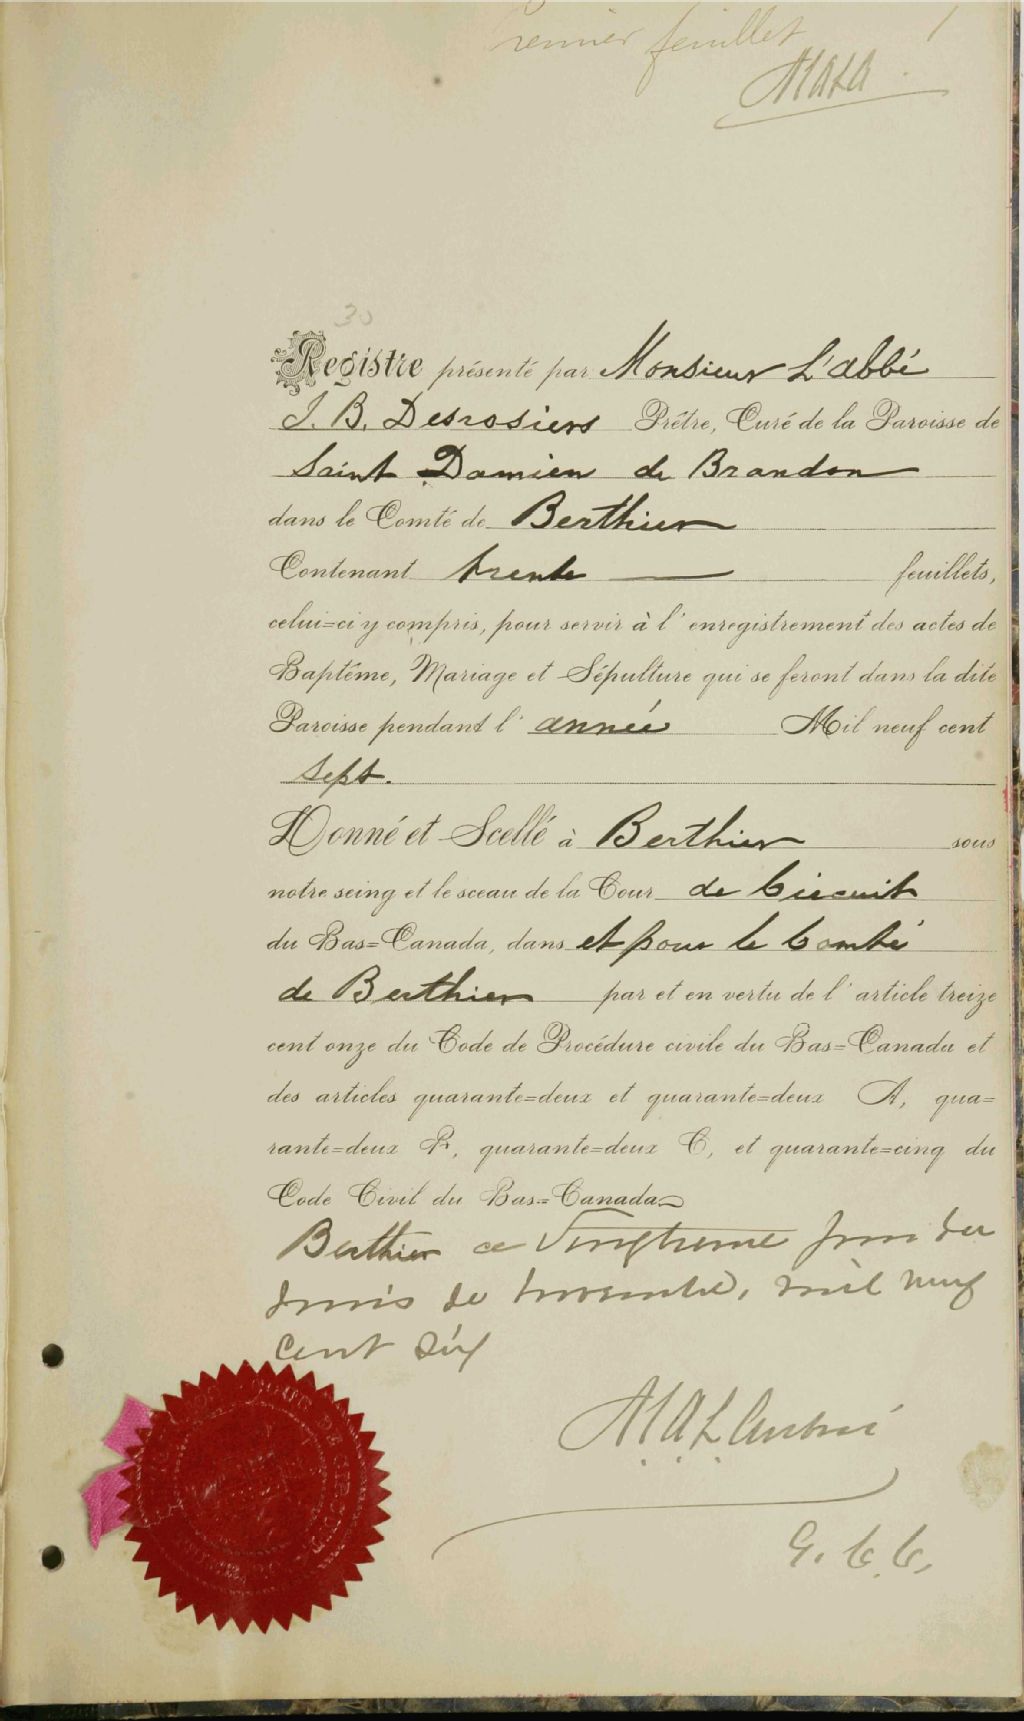 Premier feuillet 1
30
Registre présenté par Monsieur L'abbé
J. B. Desrosiers Prêtre, Curé de la Paroisse de
Saint Damien de Brandon
dans le Comté de Berthier
Contenant trente feuillets,
celui=ci y compris, pour servir à l'enregistrement des actes de
Baptême, Mariage et Sépulture qui se feront dans la dite
Paroisse pendant l'année Mil neuf cent
sept.
Donné et Scellé à Berthier sous
notre seing et le sceau de la Cour de Circuit
du Bas=Canada, dans et pour le Comté
de Berthier par et en vertu de l'article treize
cent onze du Code de Procédure civile du Bas=Canada et
des articles quarante=deux et quarante=deux A, qua=
rante=deux B, quarante=deux C, et quarante=cinq du
Code Civil du Bas=Canada
Berthier ce Vingtieme jour du
mois de novembre, mil neuf
cent six
G. C. C.